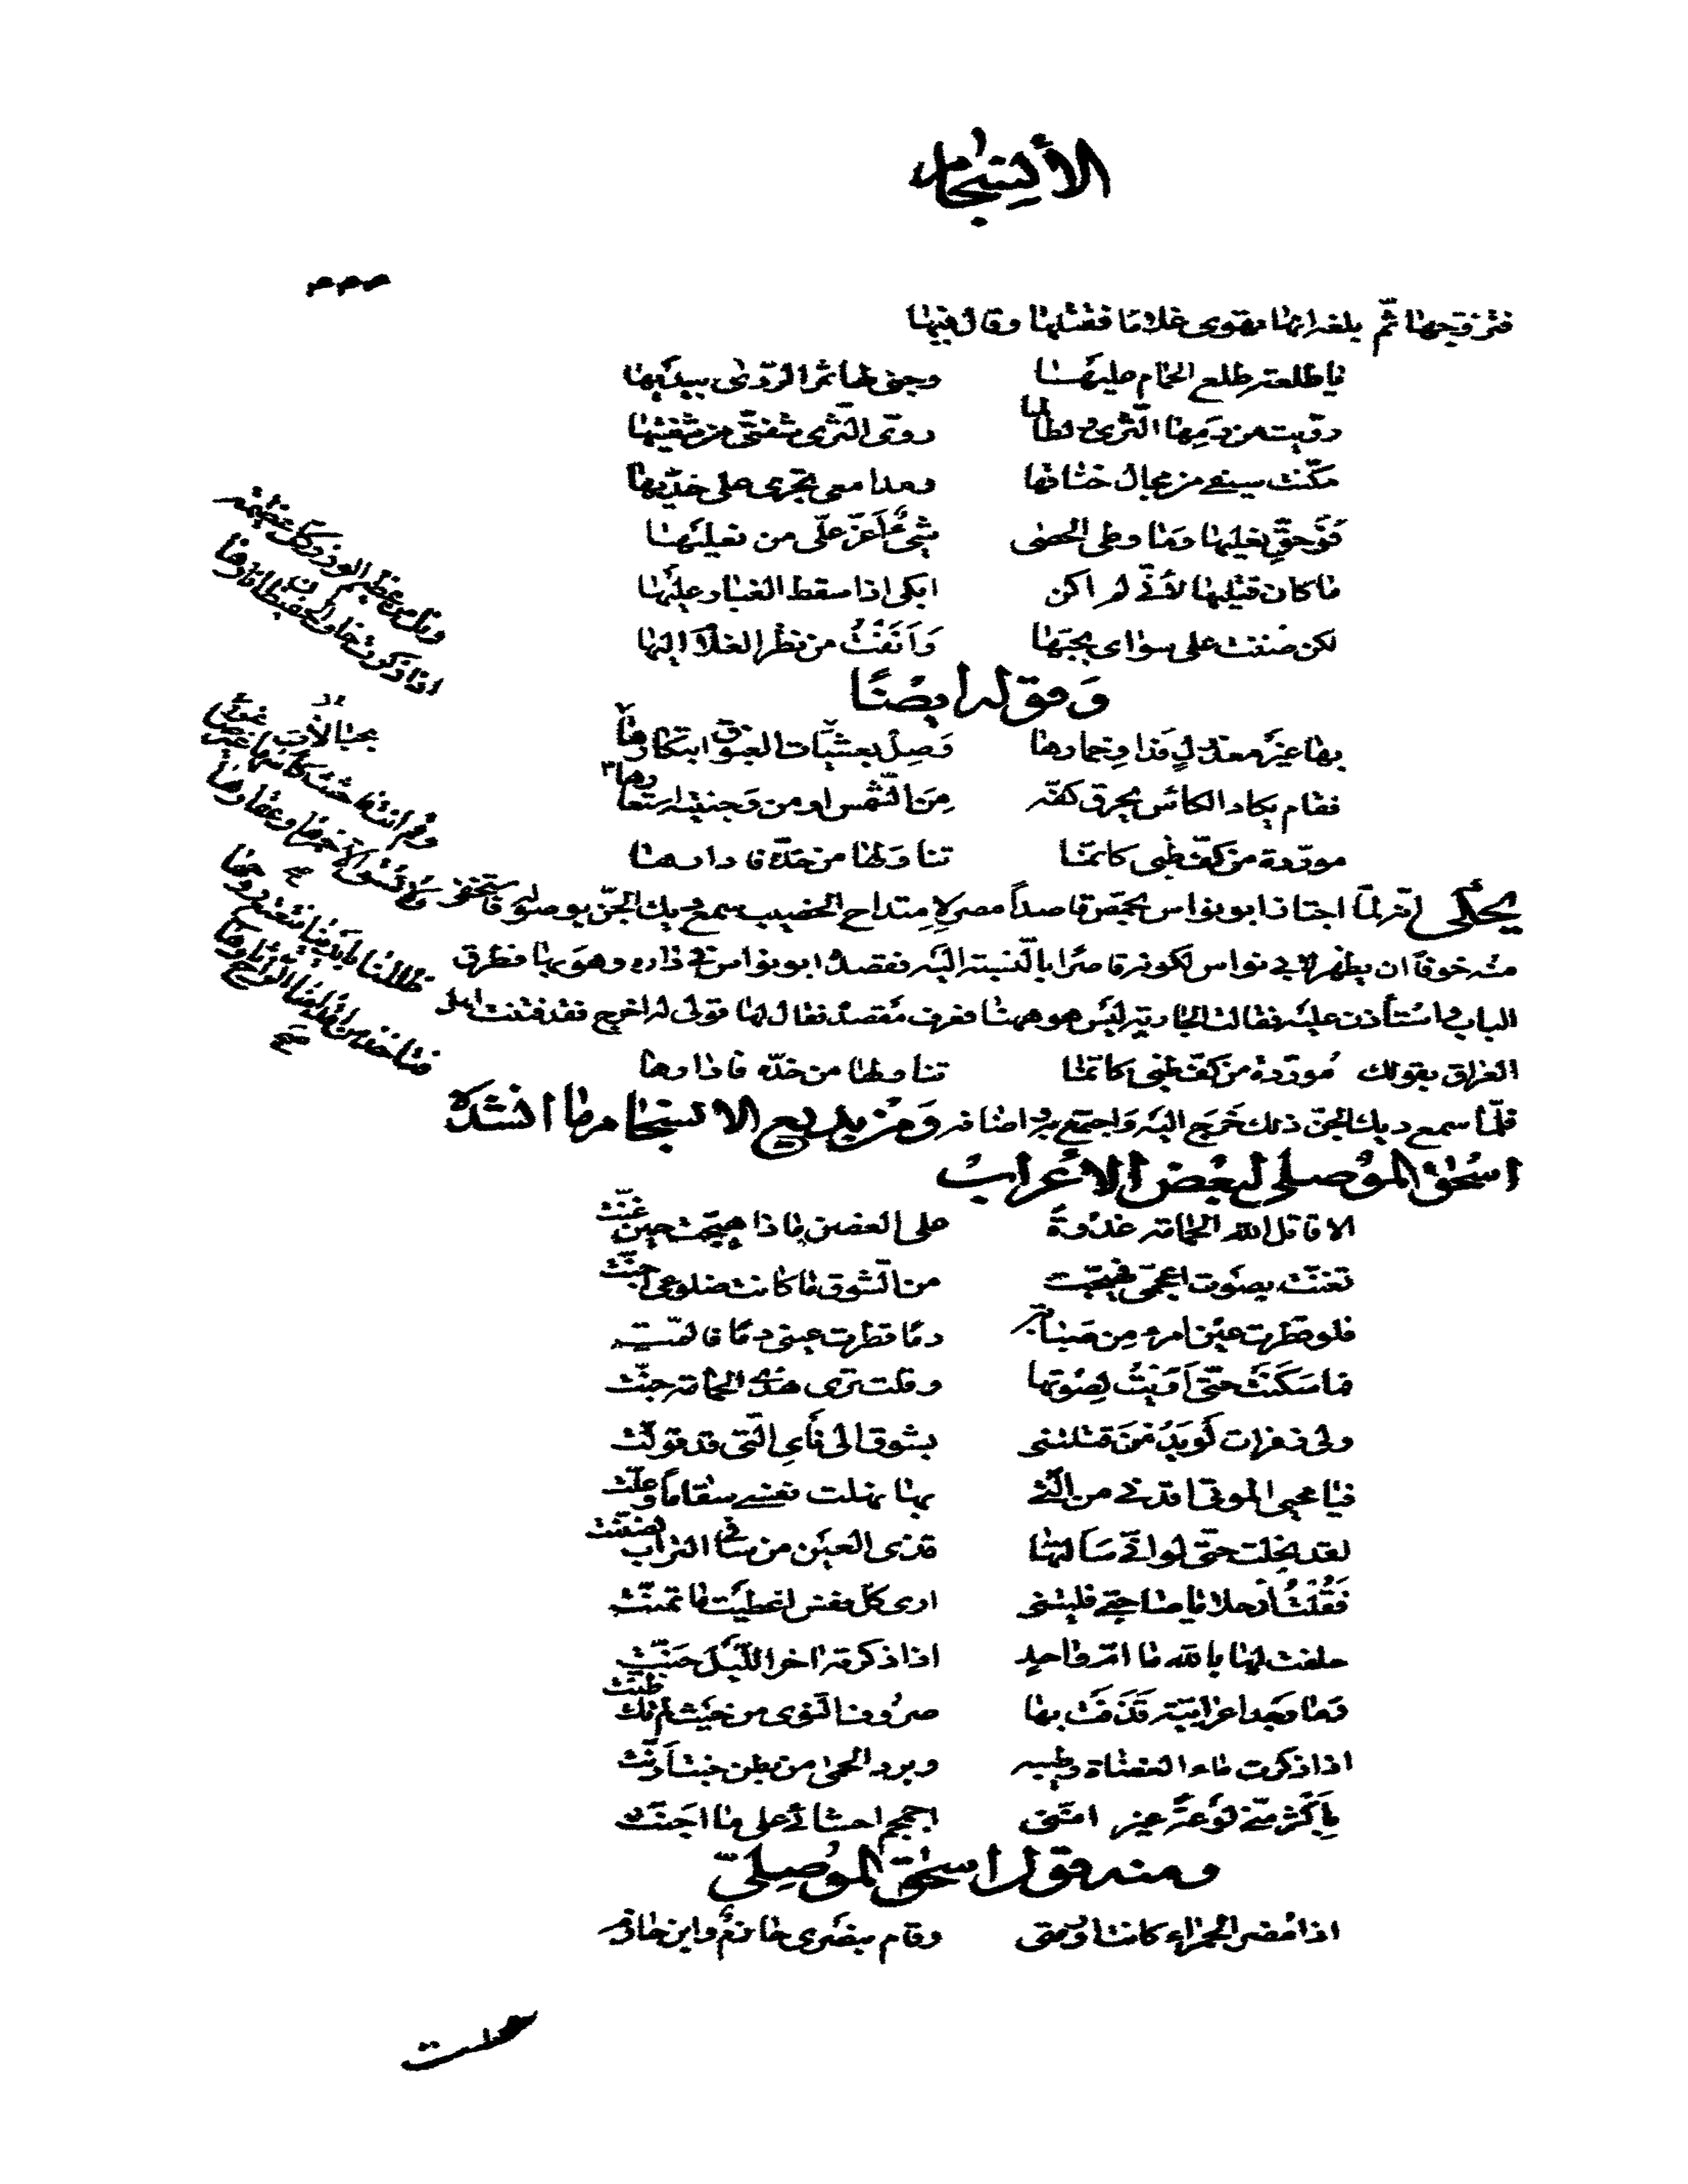 الأنسجام
فتزوّجها ثمّ بلغه انها تهوى غلاما فقتلها وقال فيها
يا طلعة طلع الحمام عليها وجنى لها ثمر الردى بيديها
روّيت من دمها الثرى ولطالما روّى الهوى شفتىّ من شفتيها
مكّنت سيفى من مجال خناقها ومدامعى تجرى على خدّيها
فوحقّ نعليها وما وطى الحصى شىءٌ أعزّ علىّ من نعليها
ما كان قتليها لأنّى لم اكن ابكى اذا سقط الغبار عليها
لكن ضننت على سواى بحبّها وأنفتُ من نظر الغلام اليها
وقوله ايضًا
بها غير معذول فداو خمارها وصِل بعشيّات الغبوق ابتكارها
فقام يكاد الكاس يحرق كفّه من الشمس او من وجنتيه استعارها
مورّدة من كفّ ظبى كانّما تناولها من خدّه فادارها
يحكى انه لمّا اجتاز ابو نواس بحمص قاصداً مصر لامتداح الخصيب سمع ديك الجنّ بوصوله فاستخفى
منه خوفاً ان يظهر لابى نواس لكونه قاصرًا بالنسبة اليه فقصده ابو نواس فى داره وهو بها فطرق
الباب واستأذن عليه فقالت الجارية ليس هو ههنا فعرف مقصده فقال لها قولى له اخرج فقد فتنت اهل
العراق بقولك مورّدة من كفّ ظبى كانّما تناولها من خدّه فادارها
فلمّا سمع ديك الجنّ ذلك خرج اليه واجتمع به واضافه ومن بديع الانسجام ما انشده
اسحٰق الموصلى لبعض الأعراب
الا قاتل الله الحمامة غدوةً على الغصن ماذا هيّجت حين غنّت
تغنّت بصوت اعجمى فهيّجت من الشوق ما كانت ضلوعى اجنّت
فلو قطرت عين امرء من صبابة دمًا قطرت عينى دمًا فالمّت
فما سكنت حتّى أويتُ لصوتها وقلت ترى هذى الحمامة جنّت
ولى زفرات لو يدمن قتلننى بشوق الى نأى الّتى قد تولّت
فيا محيى الموتى اقدنى من الّتى بها نهلت نفسى سقاماً وعلّت
لقد بخلت حتّى لو انّى سألتها قذى العين من سافى التراب لضنّت
فقلتُ ارحلا يا صاحبىّ فليتنى ارى كلّ نفس اعطيت ما تمنّت
حلفت لها بالله ما امّ واحدٍ اذا ذكرته اخر اللّيل حنّت
وما وجد اعرابيّة قذفت بها صروف النّوى من حيث لم تك ظنّت
اذا ذكرت ماء العضاة وطيبه وبرد الحمى من بطن خبت ارنّت
بأكثر منّى لوعةً غير انّنى اجمجم احشائى على ما اجنّت
ومنه قول اسحٰق الموصلىّ
اذا مضر الحمراء كانت ارومتى وقام بنصرى خازمٌ وابن خازم
وقل من عظيم الوزر كل عظيمة
اذا ذكرت خاف الحفيظان نارها
ظللنا بايدينا نتعتع روحها
فتأخذ من اقدامنا الراح ثارها
صح